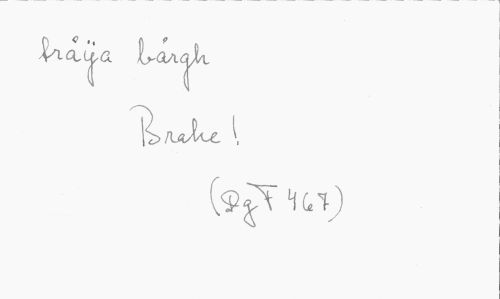 tråÿa bårgh
Brahe!
(DgF 467)